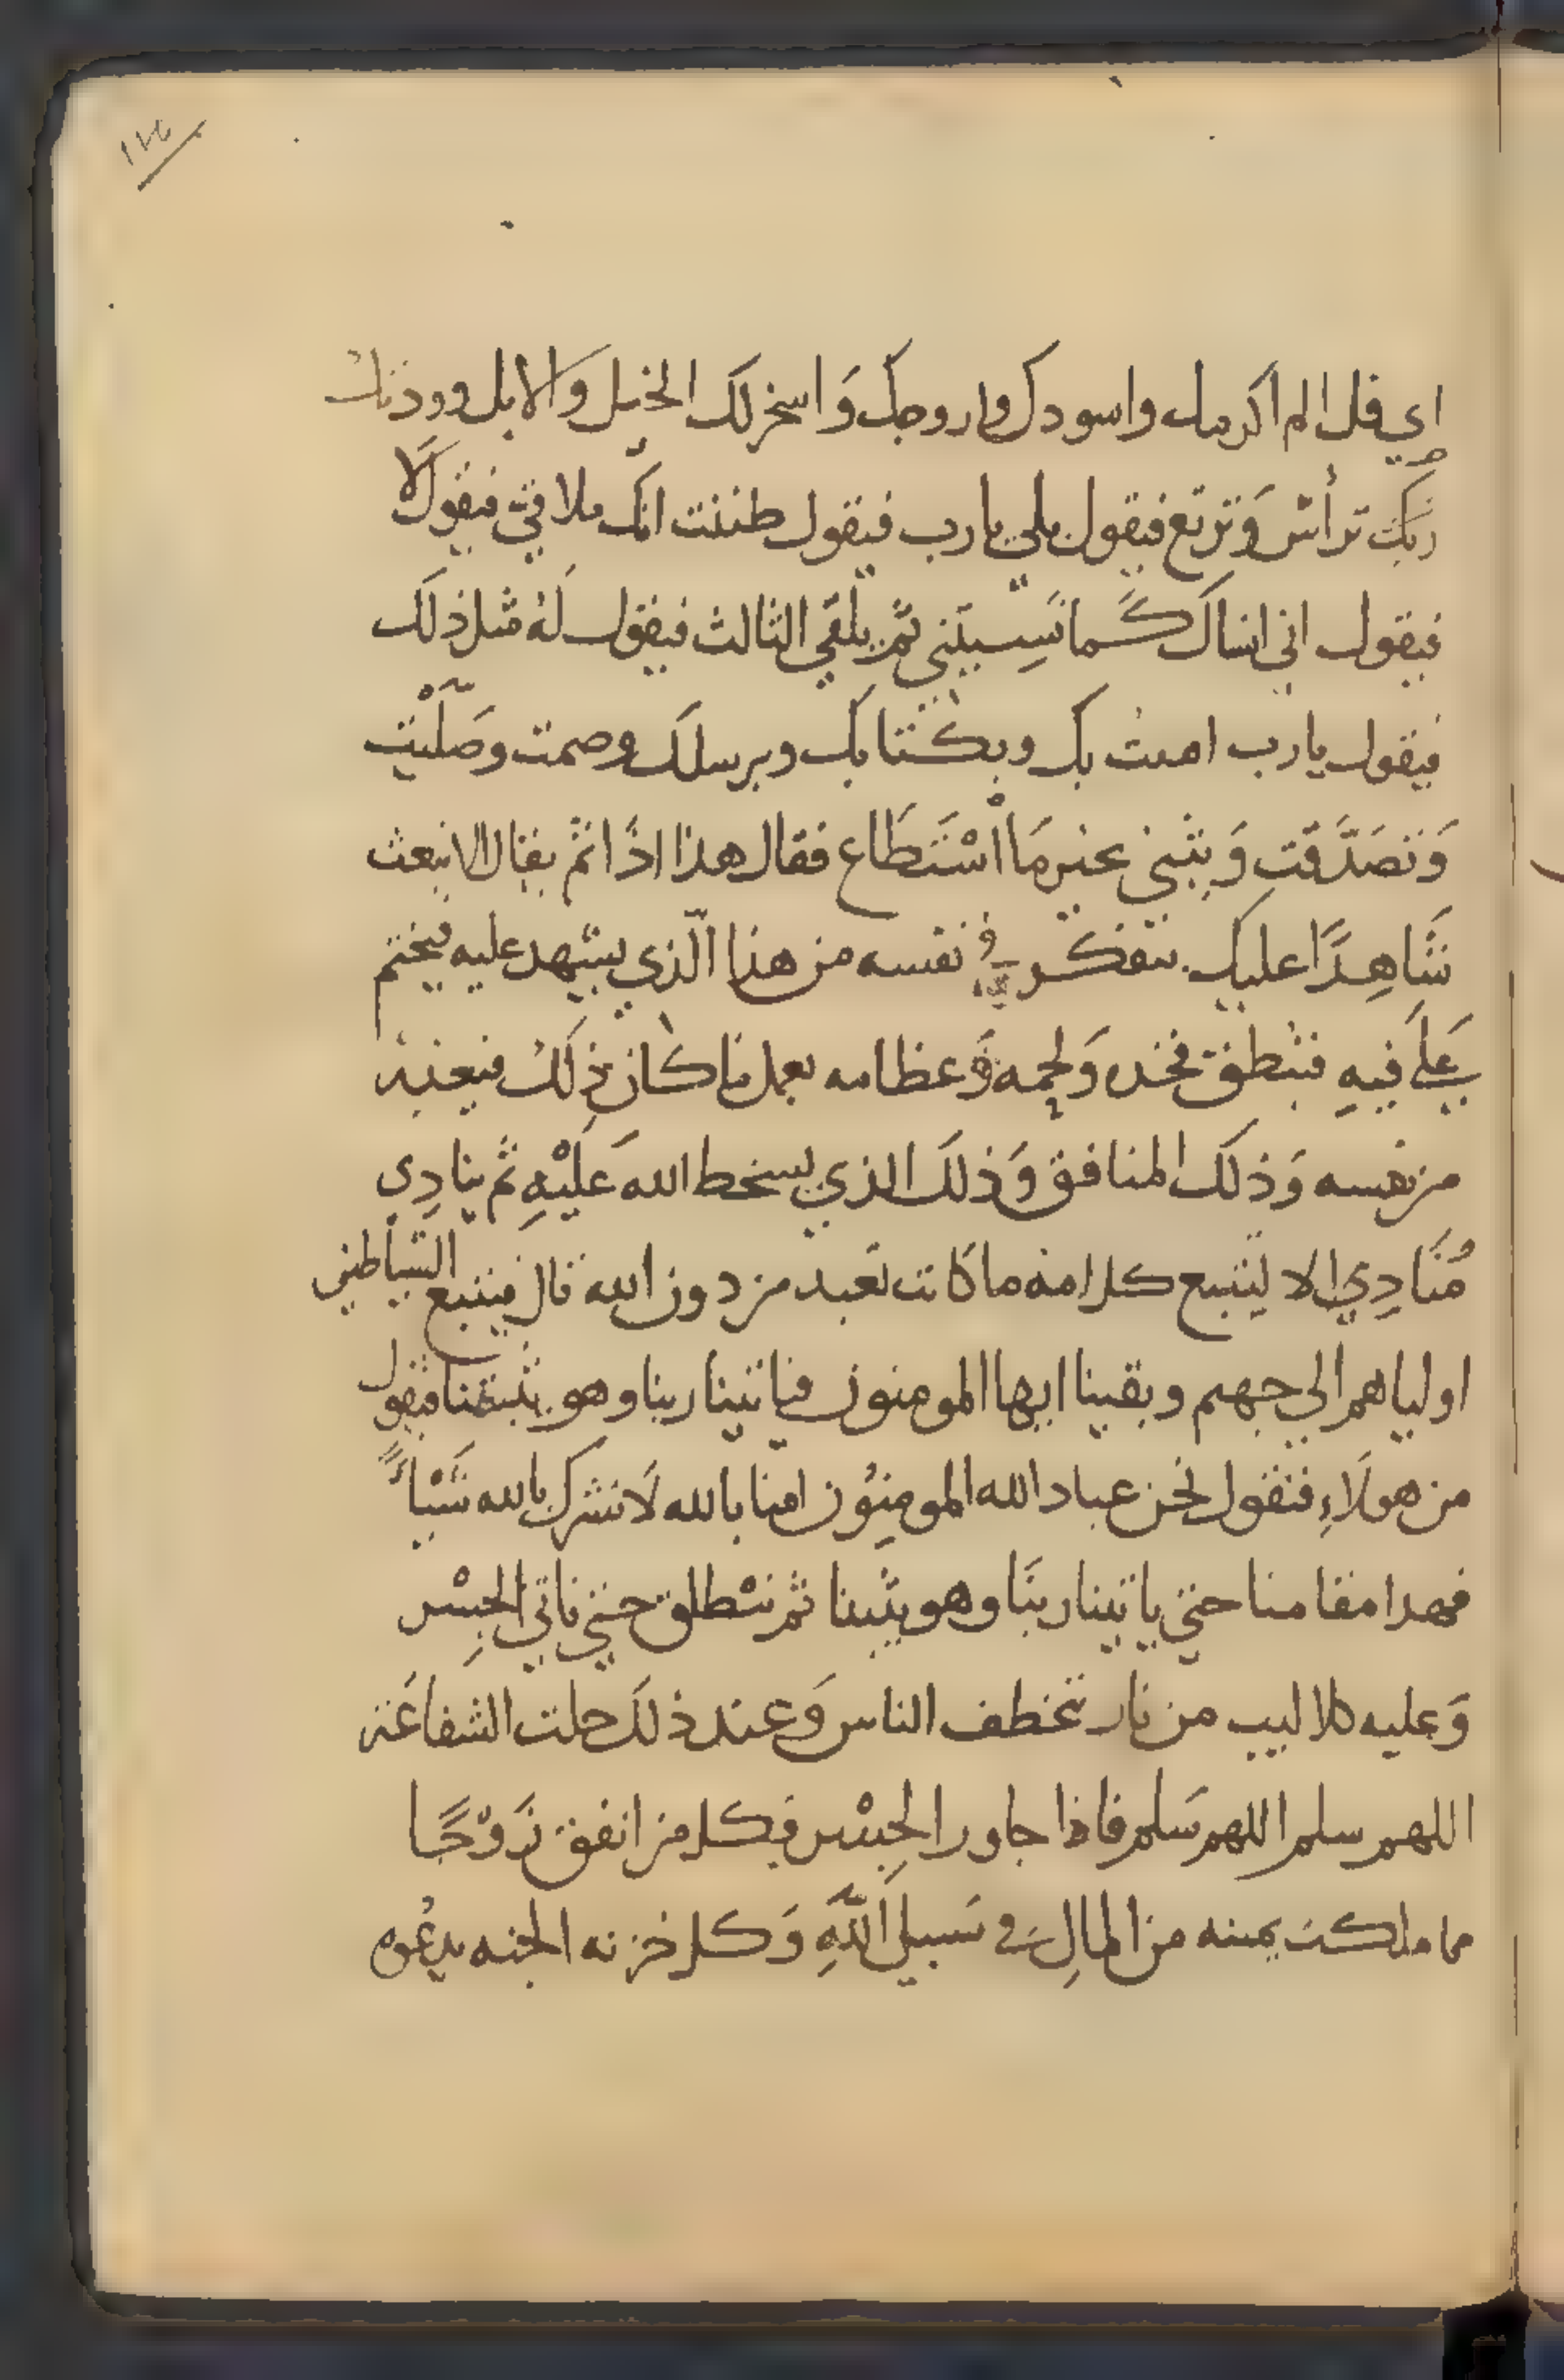 ١٧٤
اي فل الم اكرمك واسودك وازوجك وَاسخر لك الخيل والابل وودتك
ربك ترأس وَتربع فيقول بلي يا رب فيقول ظننت انك ملاقي فيقول لا
فيقول اني انساك كَما نَسِيتَني ثم يلقي الثالث فيقول لَهُ مثل ذلك
فيقول يا رب امنتُ بك وبكتابك وبرسلك وصمت وصَلّيْت
وَتصَدَّقت وَيثني بخير مَا اسْتَطَاع فقال هذا اذًا ثم يقال الا نبعث
شَاهِدًا عليك يتفكر في نفسه من هذا الّذي يشهد عليه فيختم
عَلَى فيهِ فتنطق فخذه وَلحمه وَعظامه بعمله ما كان ذِلكُ فيعذبه
من نفسه وَذلك المنافق وَذلك الذي يسخط الله عَليْهِ ثم ينادِي
مُنَادِي الا لِتتبع كل امة ما كانت تعبد من دون الله قال فيتبع الشياطين
اولياهم الي جهنم وبقينا ايها المومنون فياتينا ربنا وهو يثبتنا فيقول
من هولَاءِ فنقول نحن عباد الله المومِنُون امنا بالله لَا نشرك بالله شَيْاً
فهذا مقامنا حتي ياتينا ربنَا وهو يثبتنا ثم ننْطلق حتي ناتي الجِسْر
وَعليه كلاليب من نار تخطف الناس وَعند ذلك حلت الشفاعَة
اللهم سلم اللهم سَلم فاذا جاوز الجِسْر فكل من انفق زَوْجًا
مما ملكت يمينه من المالِ في سَبيل اللّهِ وَكل خزنه الجنه يدعُوه